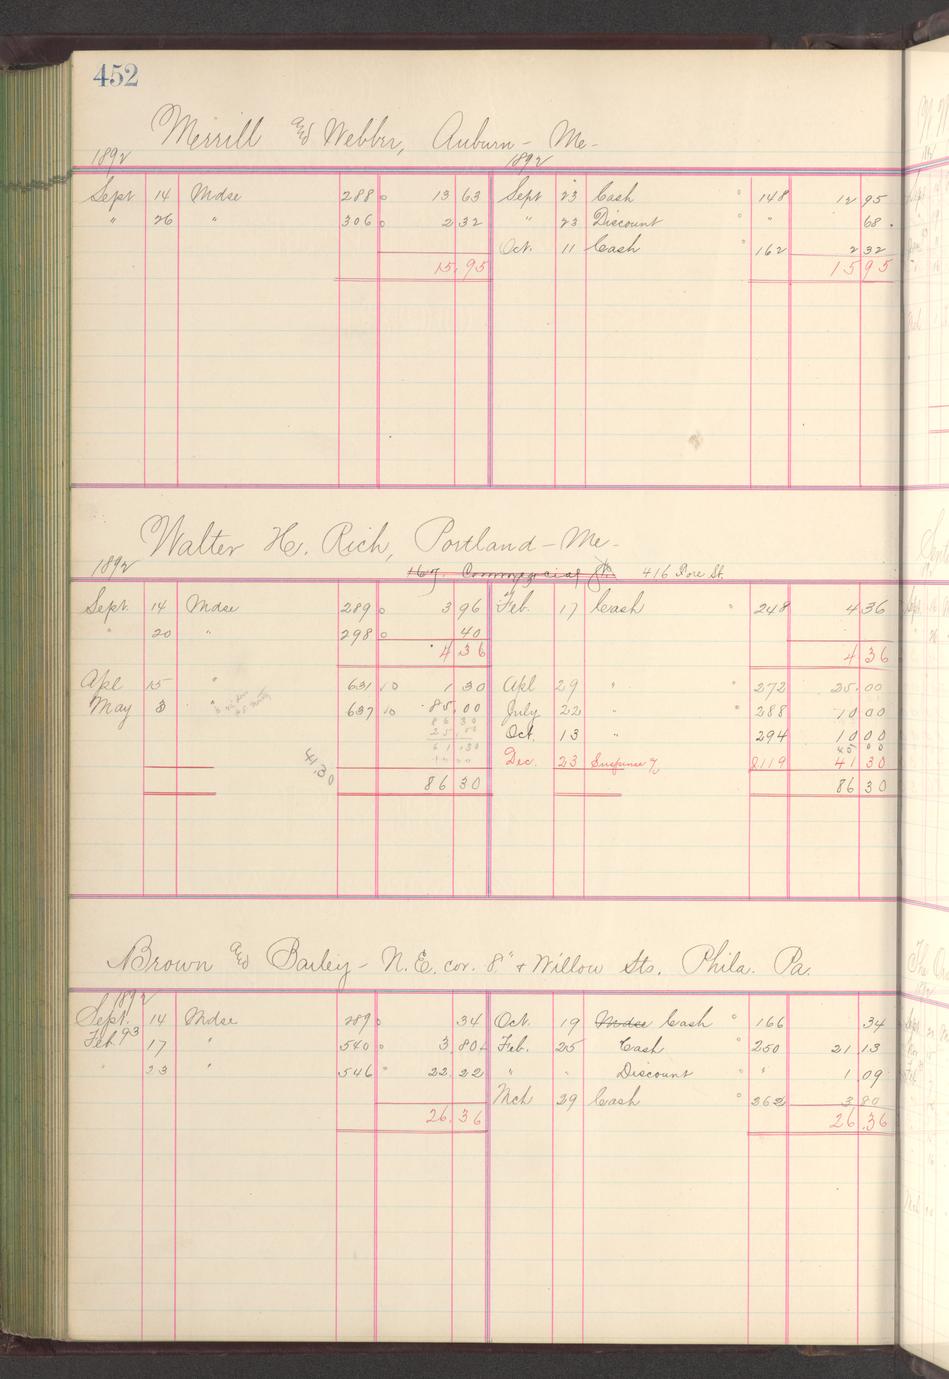 452
Merrill and Webber, Auburn - Me -
1892 1892
Sept 14 Mdse 288 13 63 Sept 23 Cash 148 12 95
" 26 " 306 2 32 " 23 Discount " 68
Oct. 11 Cash 162 2 32
15.95 15 95
Walter H. Rich, Portland - Me -
1892 167 Commercial St. 416 Fore St.
Sept. 14 Mdse 289 3 96 Feb. 17 Cash 248 4 36
" 20 " 298 40
4 36 4 36
Apl 15 " 631 10 1 30 Apl 29 " 272 25.00
May 3 " 637 10 85.00 July 22 " 288 10 00
86 30
25.00 Oct. 13 " 294 10 00
61.30 45 00
41.30 Dec. 23 Suspense 119 41 30
86 30 86 30
Brown and Bailey - N.E. cor. 8" & Willow Sts. Phila. Pa.
1892
Sept. 14 Mdse 289 34 Oct. 19 Mdse Cash 166 34
Feb 93 17 " 540 3.80 Feb. 25 Cash 250 21 13
" 23 " 546 22.22 " " Discount " 1 09
Mch 29 Cash 262 3 80
26.36 26.36